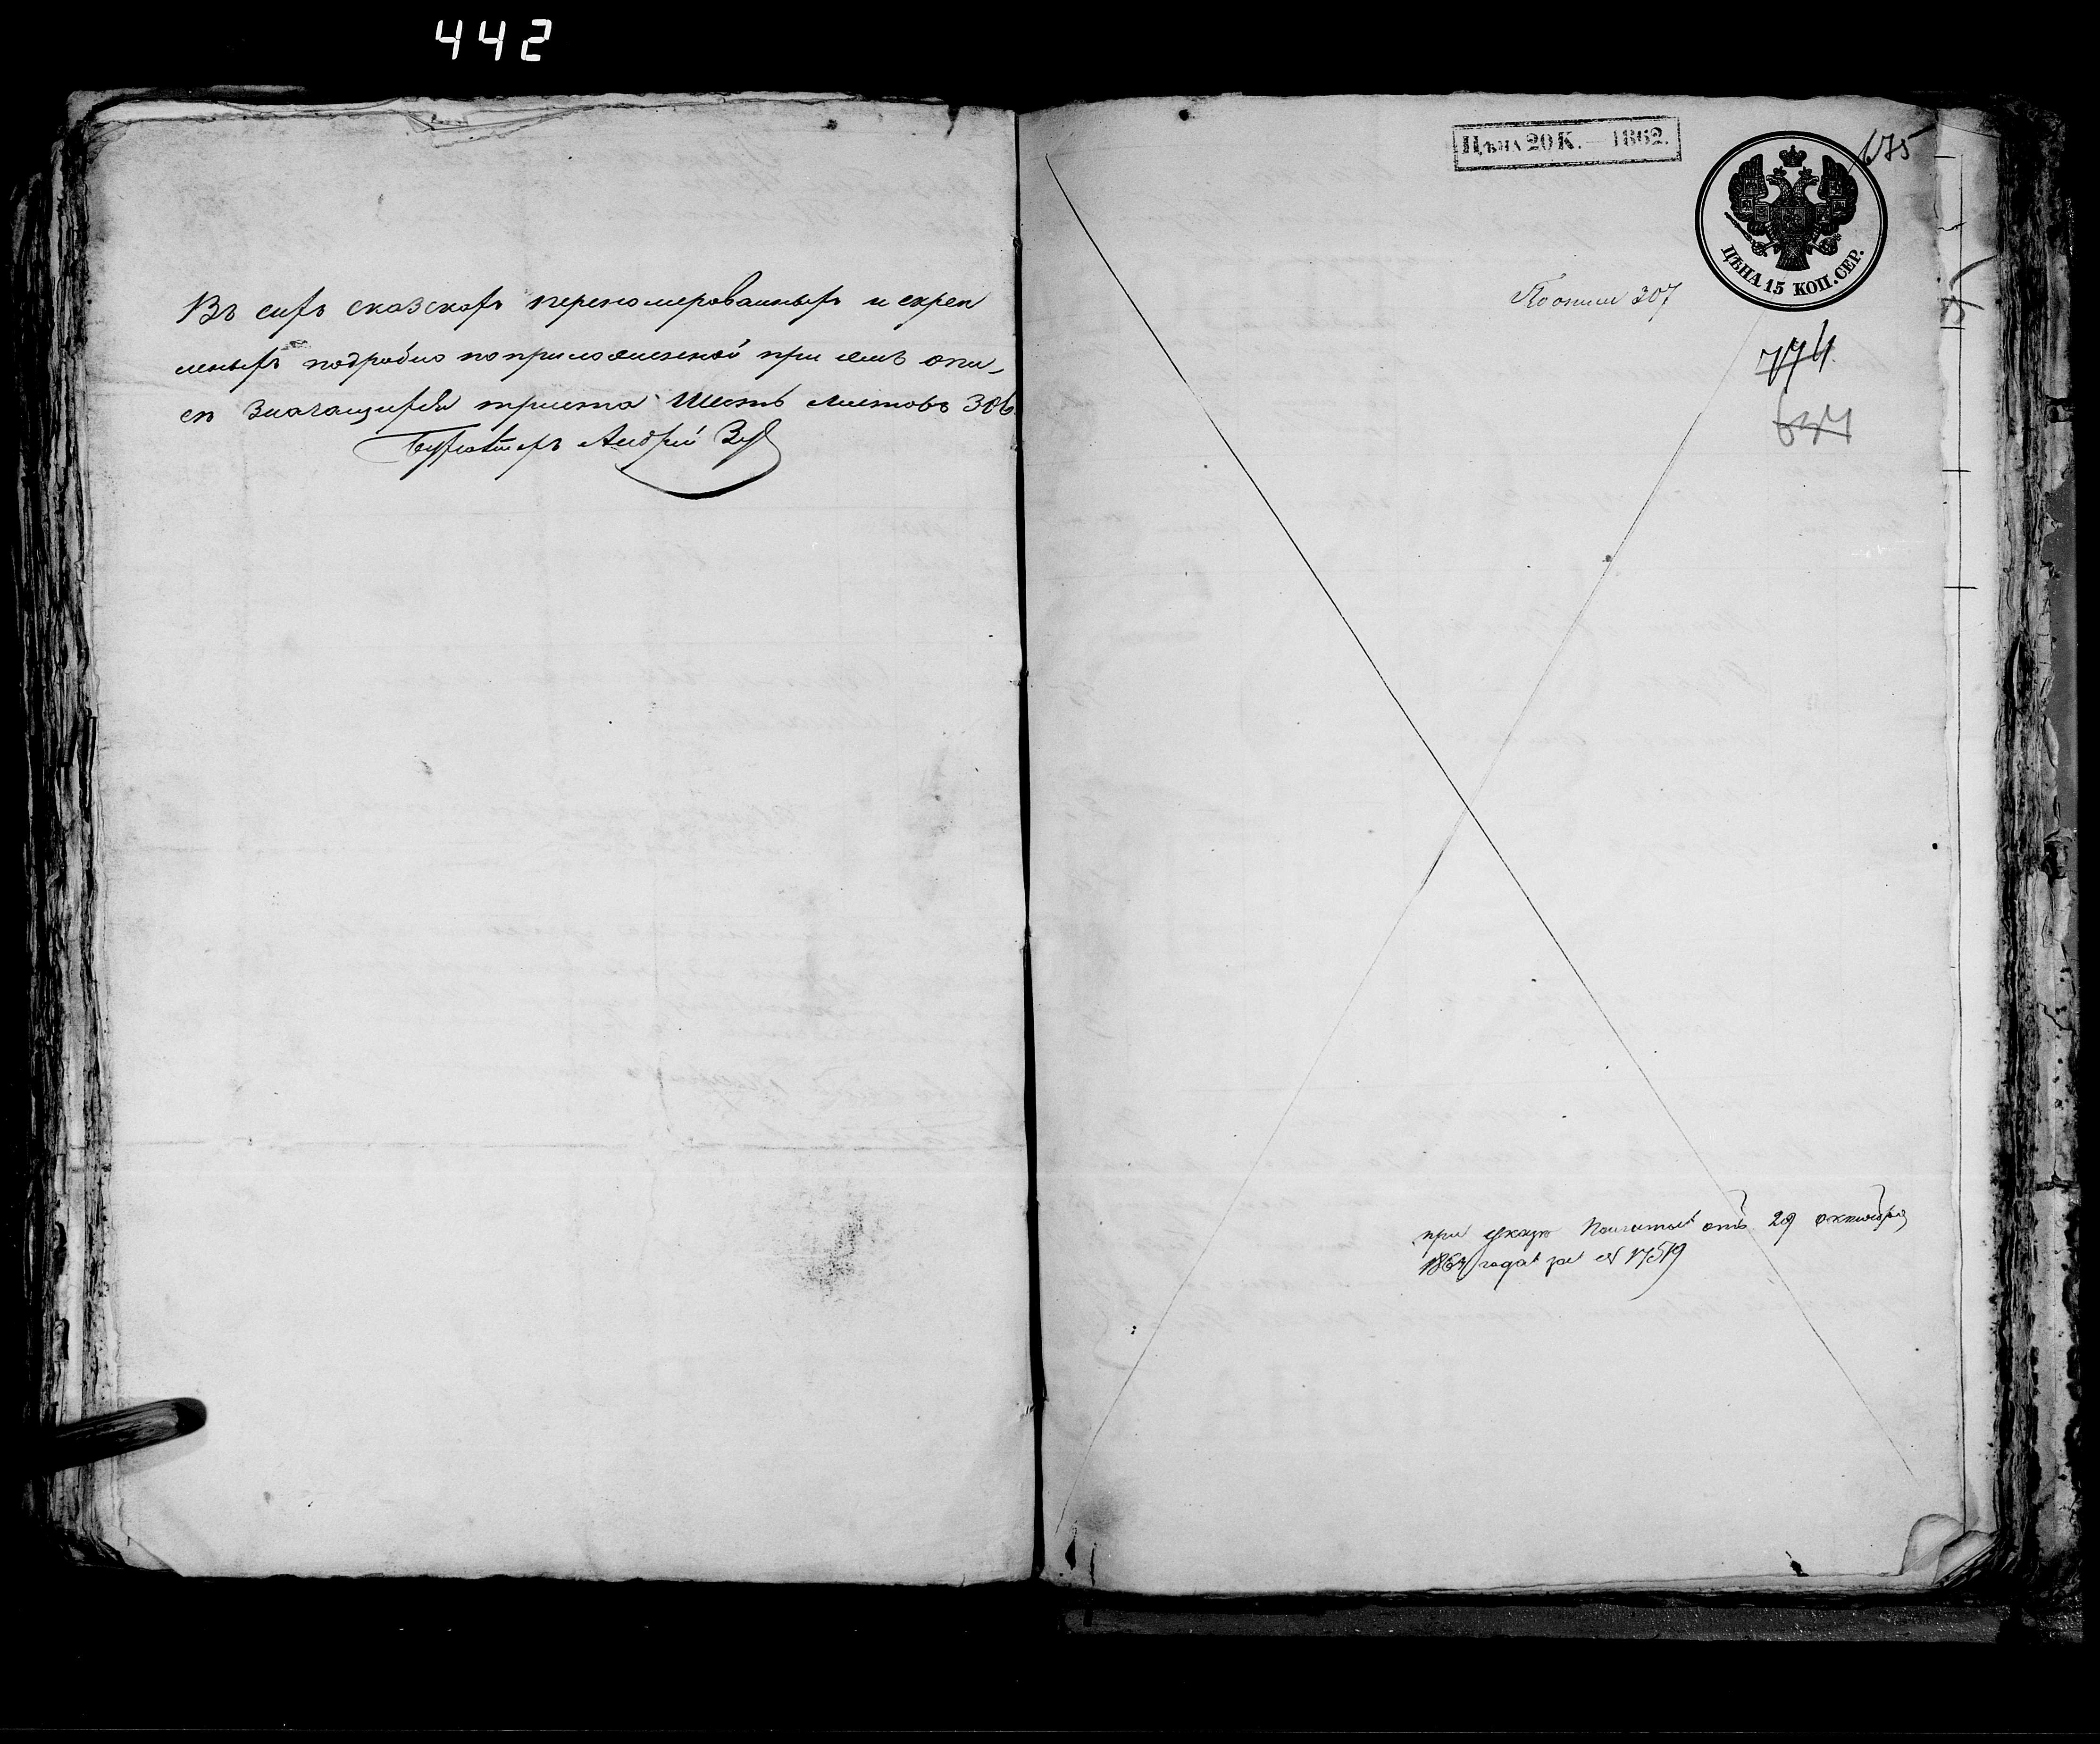 442
Въ сихъ сказскахъ переномерованныхъ и скреп
леныхъ подробно поприложенной при нихъ опи-
си значащихся триста Шесть листовъ 306
Бухгалтеръ Андрей
Цѣна 20 К. — 1862.
675
ЦѢНА 15 КОП. СЕР.
По описи 307
774
634
при указе Палаты отъ 29 октября
186 года за № 17519